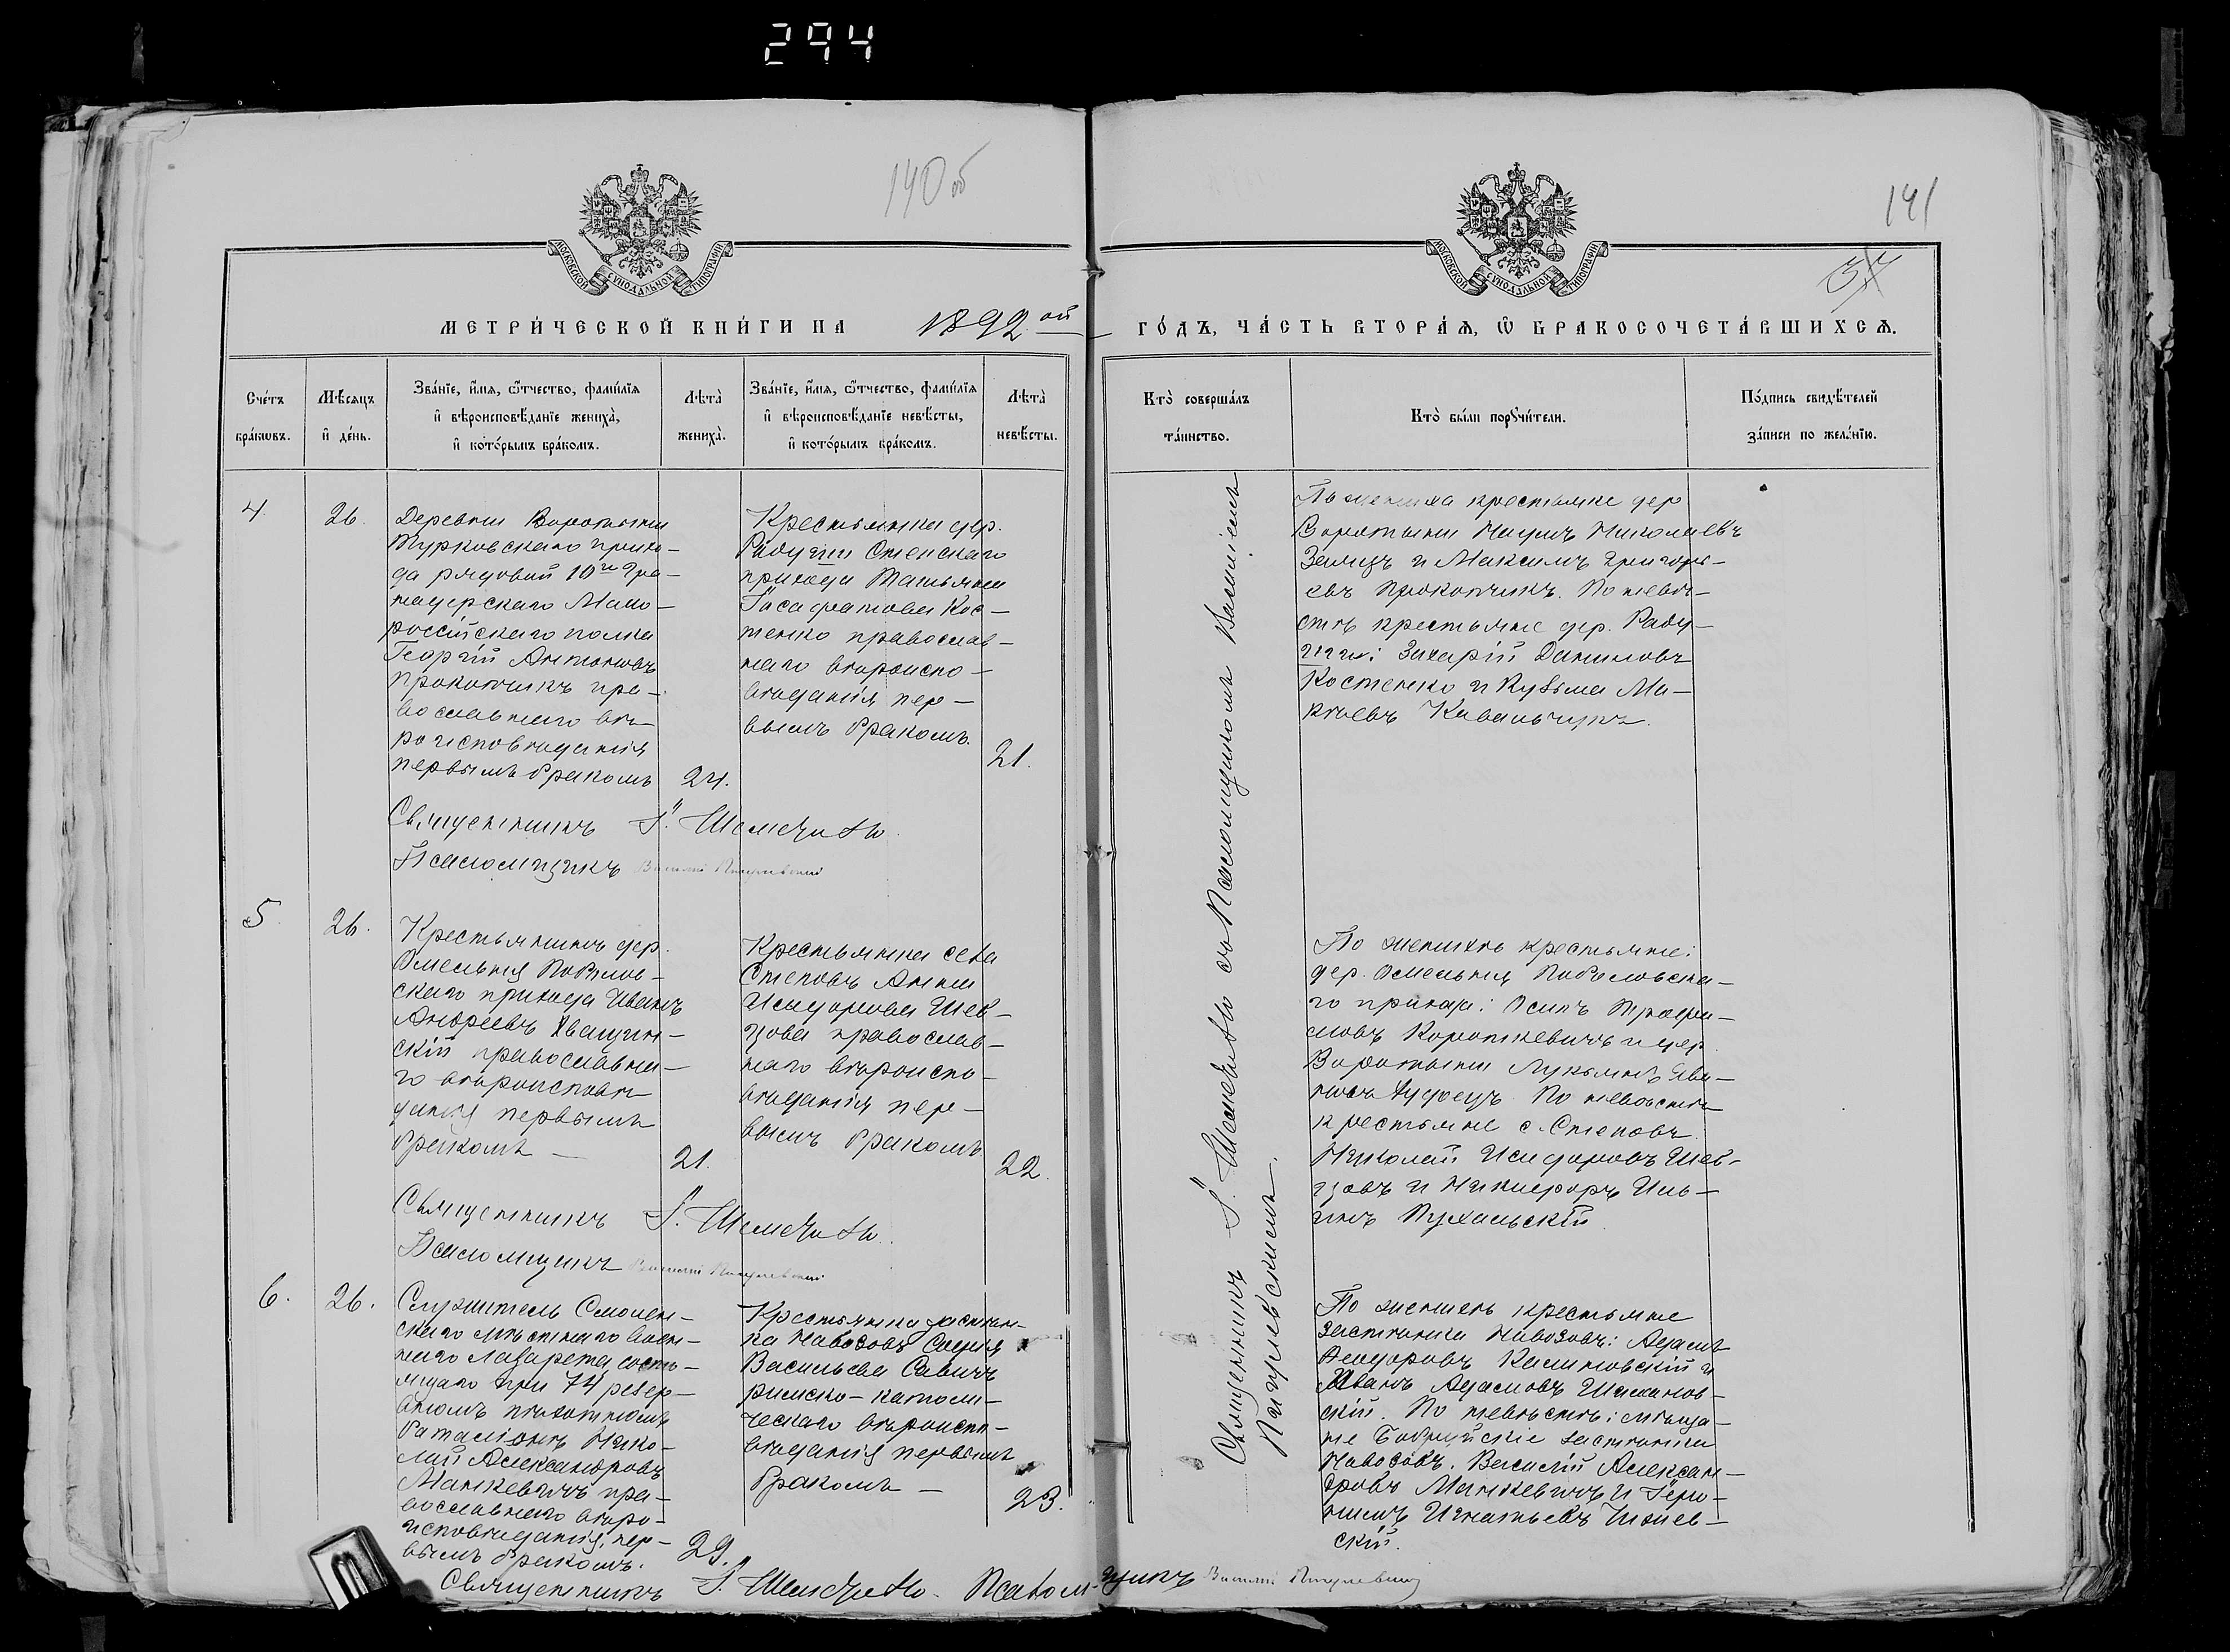 294
140 об
141
37
МОСКОВСКОЙ СѴНОДАЛЬНОЙ ТИПОГРАФІИ
МОСКОВСКОЙ СѴНОДАЛЬНОЙ ТИПОГРАФІИ
МЕТРИ́ЧЕСКОЙ КНИ́ГИ НА 1892ой
ГО́ДЪ, ЧА́СТЬ ВТОРА́Я, Ѿ БРАКОСОЧЕТА́ВШИХСЯ.
Сче́тъ
бра́кѡвъ.
Мѣ́сяцъ
и҆ де́нь.
Зва́нїе, и҆́мя, ѻ҆́тчество, фами́лїя
и҆ вѣроисповѣ́данїе жениха̀,
и҆ кото́рымъ бра́комъ.
Лѣта̀
жениха̀.
Зва́нїе, и҆́мя, ѻ҆́тчество, фами́лїя
и҆ вѣроисповѣ́данїе невѣ́сты,
и҆ кото́рымъ бра́комъ.
Лѣта̀
невѣ́сты.
Кто̀ соверша́лъ
та́инство.
Кто̀ бы́ли порꙋчи́тели.
По́дпись свидѣ́телей
за́писи по жела́нїю.
4.
26.
Деревни Воротыни
Турковскаго прихо-
да рядовой 10го Гре-
надерскаго Мало-
россійскаго полка
Георгій Антоновъ
Прокопчикъ пра-
вославнаго вѣ-
роисповѣданія
первымъ бракомъ
24.
Крестьянка дер.
Радуши Степскаго
прихода Татьяна
Іасафатова Кос-
тенко православ-
наго вѣроиспо-
вѣданія пер-
вымъ бракомъ.
21.
Священникъ І. Шеметило.
Псаломщикъ Василій Пигулевскій
По жениха крестьяне дер
Воротыни Наумъ Николаевъ
Заяцъ и Максимъ Григорь-
евъ Прокопчикъ. По невѣ-
стѣ крестьяне дер. Раду-
ши: Захарій Даниловъ
Костенко и Кузьма Ма-
кѣевъ Кавальчукъ.
5.
26.
Крестьянинъ дер.
Омельня Повлов-
скаго прихода Иванъ
Андреевъ Хващин-
скій православна-
го вѣроисповѣ-
данія первымъ
бракомъ —
21.
Крестьянка села
Степовъ Анна
Исидорова Шев-
цова православ-
наго вѣроиспо-
вѣданія пер-
вымъ бракомъ
22.
Священникъ І. Шеметило.
Псаломщикъ Василій Пигулевскій
По женихѣ крестьяне:
дер. Омельня
го прихода: Осипъ Трофи-
мовъ Короткевичъ и дер.
Воротыни Лукьянъ Ива-
новъ По невѣстѣ
крестьяне с. Степовъ
Николай Исидоровъ Шев-
цовъ и Никифоръ Иль-
инъ Пухальскій
6.
26.
Служитель Смолен-
скаго мѣстнаго воен-
наго лазарета, состо-
ящаго при 74 резер-
вномъ пѣхотномъ
баталіонѣ Нико-
лай Александровъ
Манкевичъ пра-
вославнаго вѣро-
исповѣданія, пер-
вымъ бракомъ.
29.
Крестьянка застѣн-
ка Навозовъ Софія
Васильева Савичъ
римско-католи-
ческаго вѣроиспо-
вѣданія первымъ
бракомъ —
23.
По женихѣ крестьяне
застѣнка Навозовъ: Адамъ
Феодоровъ Калиновскій и
Иванъ Адамовъ
скій. По невѣстѣ: мѣща-
не Бобруйскіе застѣнка
Навозовъ. Василій Александ-
ровъ Манкевичъ и Іеро-
нимъ Игнатьевъ
скій.
Священникъ І. Шеметило. Псаломщикъ Василій Пигулевскій
Священникъ І. Шеметило со Псаломщикомъ Василіемъ
Пигулевскимъ.